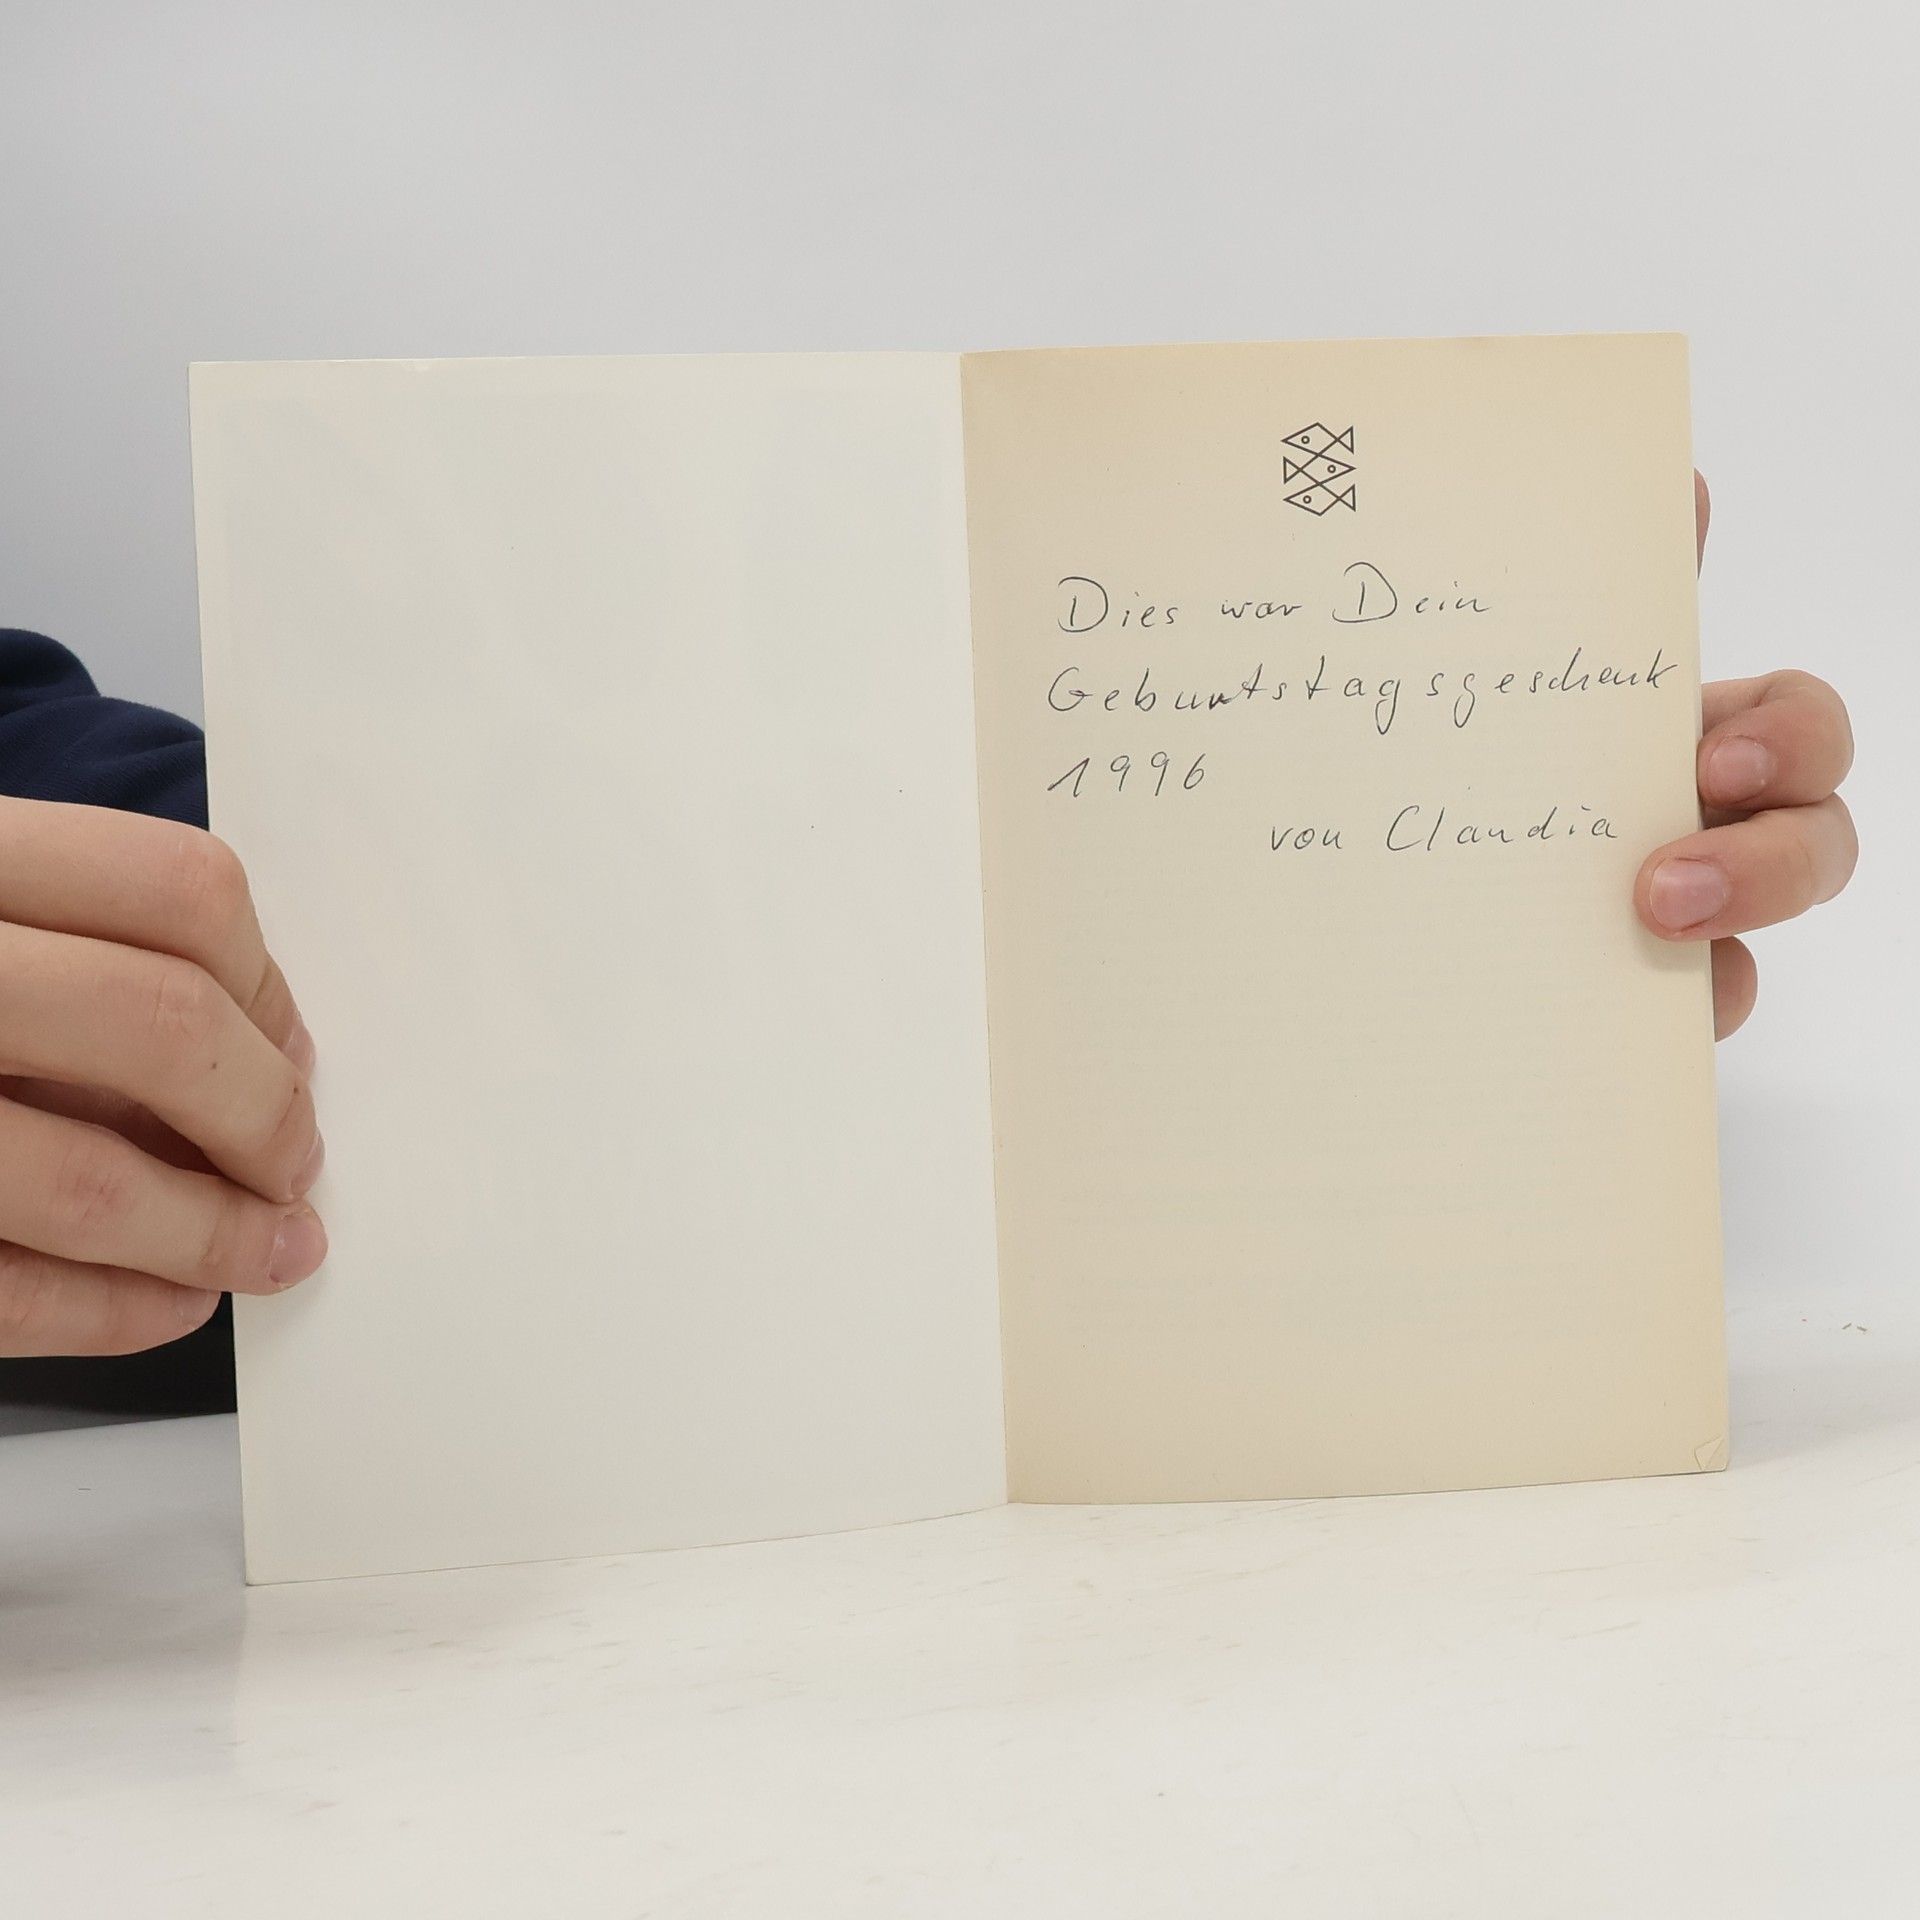 Dies war Dein
Geburtstagsgeschenk
1996
von Claudia